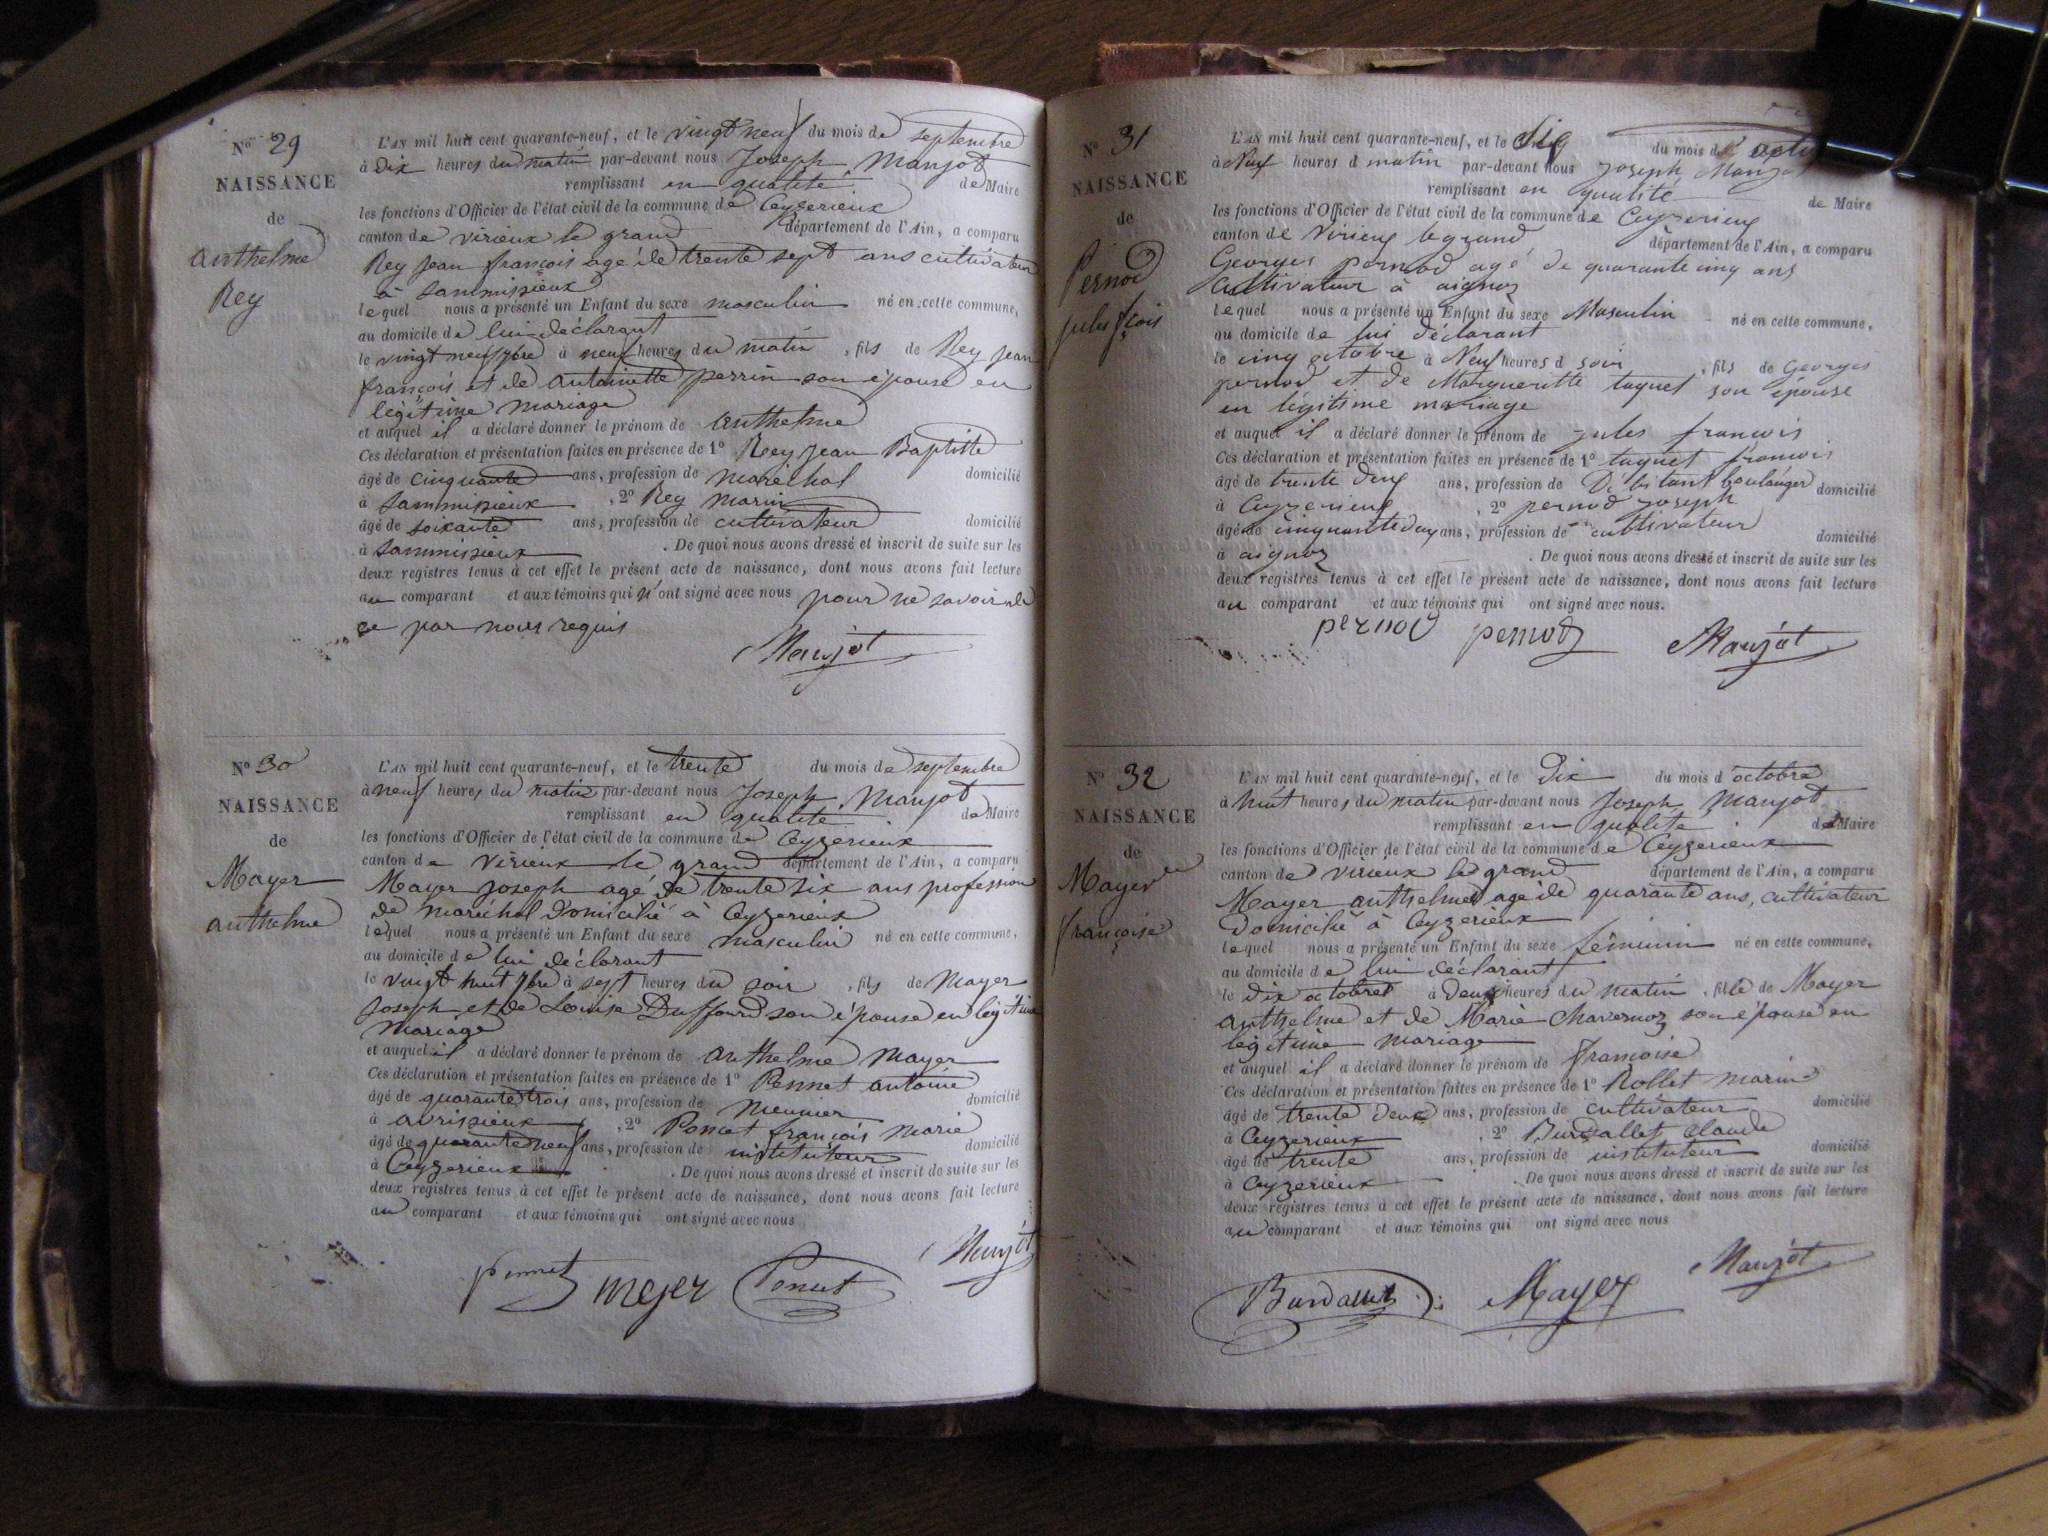 N° 29
NAISSANCE
de
anthelme
Rey
L'AN mil huit cent quarante-neuf, et le vingt neuf du mois de septembre
à dix heures du matin par-devant nous Joseph Maujot
remplissant en qualité de Maire
les fonctions d'Officier de l'état civil de la commune de Ceyzerieux
canton de virieux le grand département de l'Ain, a comparu
Rey jean françois agé de trente sept ans cultivateur
à Sammissieux
lequel nous a présenté un Enfant du sexe masculin né en cette commune,
au domicile de lui déclarant
le vingt neuf 7bre à neuf heures du matin, fils de Rey jean
françois et de antoinette perrin son épouse en
légitime mariage
et auquel il a déclaré donner le prénom de anthelme
Ces déclaration et présentation faites en présence de 1° Rey jean Baptiste
âgé de cinquante ans, profession de maréchal domicilié
à Sammissieux , 2° Rey marin
âgé de soixante ans, profession de cultivateur domicilié
à Sammissieux . De quoi nous avons dressé et inscrit de suite sur les
deux registres tenus à cet effet le présent acte de naissance, dont nous avons fait lecture
au comparant et aux témoins qui n'ont signé avec nous pour ne savoir de
ce par nous requis
Maujot
N° 30
NAISSANCE
de
Mayer
anthelme
L'AN mil huit cent quarante-neuf, et le trente du mois de septembre
à neuf heures du matin par-devant nous Joseph Maujot
remplissant en qualité de Maire
les fonctions d'Officier de l'état civil de la commune de Ceyzerieux
canton de virieux le grand département de l'Ain, a comparu
Mayer joseph agé de trente six ans profession
de maréchal Domicilié à Ceyzerieux
lequel nous a présenté un Enfant du sexe masculin né en cette commune,
au domicile de lui déclarant
le vingt huit 7bre à sept heures du soir , fils de Mayer
joseph et de Louise Duffourd son épouse en légitime
mariage
et auquel il a déclaré donner le prénom de anthelme Mayer
Ces déclaration et présentation faites en présence de 1° Pennet antoine
âgé de quarante trois ans, profession de meunier domicilié
à avrissieux , 2° Poncet françois marie
âgé de quarante neuf ans, profession de instituteur domicilié
à Ceyzerieux . De quoi nous avons dressé et inscrit de suite sur les
deux registres tenus à cet effet le présent acte de naissance, dont nous avons fait lecture
au comparant et aux témoins qui ont signé avec nous
pennet mejer Poncet Maujot
N° 31
NAISSANCE
de
Pernod
jules fçois
L'AN mil huit cent quarante-neuf, et le six du mois d'
à Neuf heures d matin par-devant nous joseph Maujot
remplissant en qualité de Maire
les fonctions d'Officier de l'état civil de la commune de Ceyzerieux
canton de Virieux legrand département de l'Ain, a comparu
Georges pernod agé de quarante cinq ans
Cultivateur à aignoz
lequel nous a présenté un Enfant du sexe Masculin né en cette commune,
au domicile de lui déclarant
le cinq octobre à Neuf heures d soir , fils de Georges
pernod et de Margueritte taquet son épouse
en légitisme mariage
et auquel il a déclaré donner le prénom de jules francois
Ces déclaration et présentation faites en présence de 1° taquet francois
âgé de trente deux ans, profession de Débitant boulanger domicilié
à Ceyzerieux , 2° pernod joseph
âgé de cinquantte deux ans, profession de cultivateur domicilié
à aignoz . De quoi nous avons dressé et inscrit de suite sur les
deux registres tenus à cet effet le présent acte de naissance, dont nous avons fait lecture
au comparant et aux témoins qui ont signé avec nous.
pernod pernod Maujot
N° 32
NAISSANCE
de
Mayer
françoise
L'AN mil huit cent quarante-neuf, et le Dix du mois d'octobre
à huit heures du matin par-devant nous Joseph Maujot
remplissant en qualité de Maire
les fonctions d'Officier de l'état civil de la commune de Ceyzerieux
canton de virieux le grand département de l'Ain, a comparu
Mayer anthelme agé de quarante ans, cultivateur
Domicilié à Ceyzerieux
lequel nous a présenté un Enfant du sexe féminin né en cette commune,
au domicile de lui déclarant
le dix octobre à deux heures du matin , fille de Mayer
anthelme et de Marie Chavernoz son épouse en
légitime mariage
et auquel il a déclaré donner le prénom de françoise
Ces déclaration et présentation faites en présence de 1° Rollet marin
âgé de trente deux ans, profession de cultivateur domicilié
à Ceyzerieux , 2° Burdallet claude
âgé de trente ans, profession de instituteur domicilié
à Ceyzerieux . De quoi nous avons dressé et inscrit de suite sur les
deux registres tenus à cet effet le présent acte de naissance, dont nous avons fait lecture
au comparant et aux témoins qui ont signé avec nous
Mayer Maujot